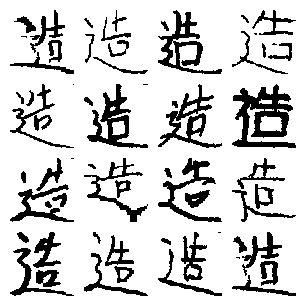 造造造造
造造造造
造造造造
造造造造